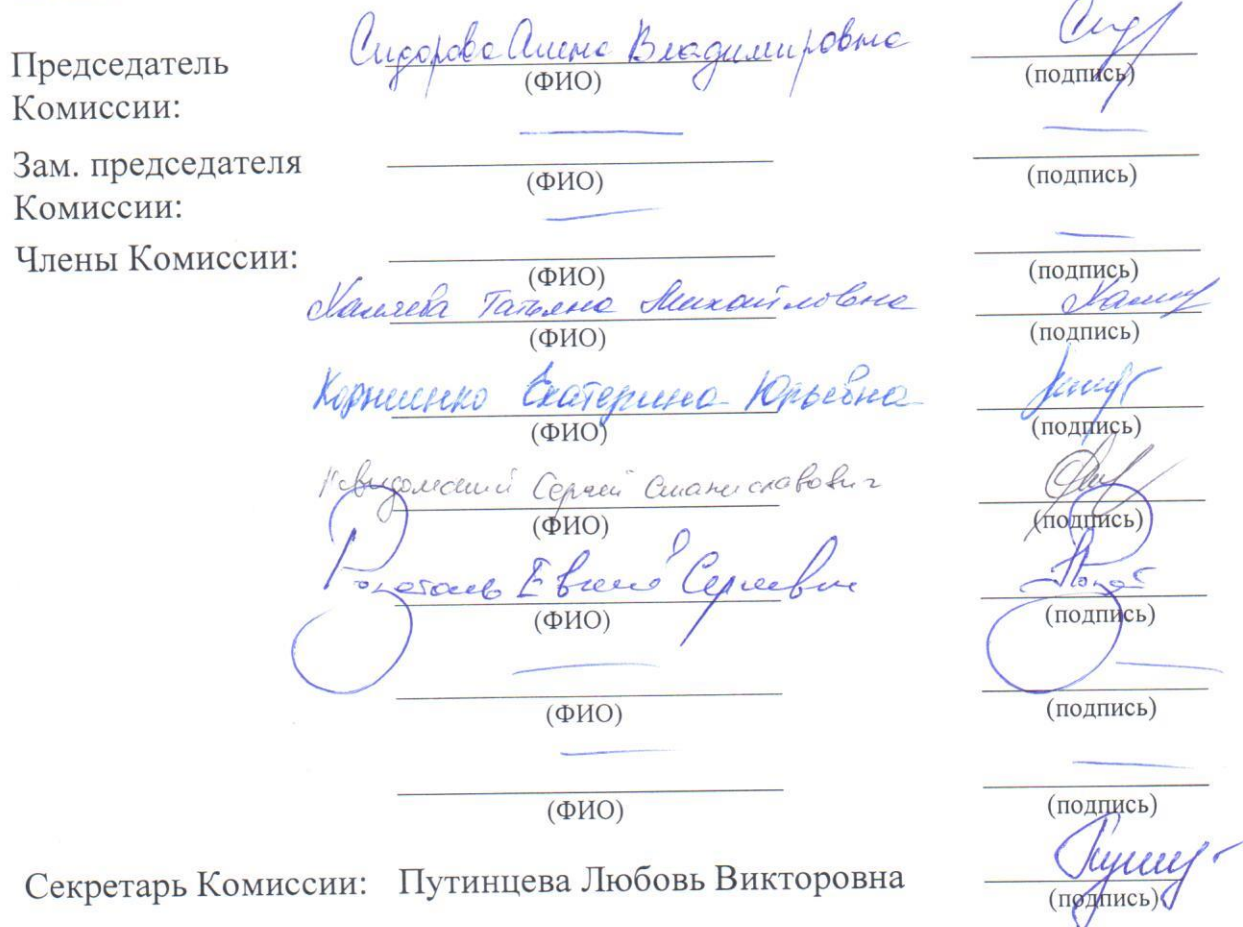 Председатель Комиссии: Сидорова Алена Владимировна
(ФИО) (подпись)
Зам. председателя Комиссии:
(ФИО) (подпись)
Члены Комиссии:
(ФИО) (подпись)
Татьяна Михайловна
(ФИО) (подпись)
Корниенко Екатерина Юрьевна
(ФИО) (подпись)
Сергей Станиславович
(ФИО) (подпись)
Евгений Сергеевич
(ФИО) (подпись)
(ФИО) (подпись)
(ФИО) (подпись)
Секретарь Комиссии: Путинцева Любовь Викторовна
(подпись)